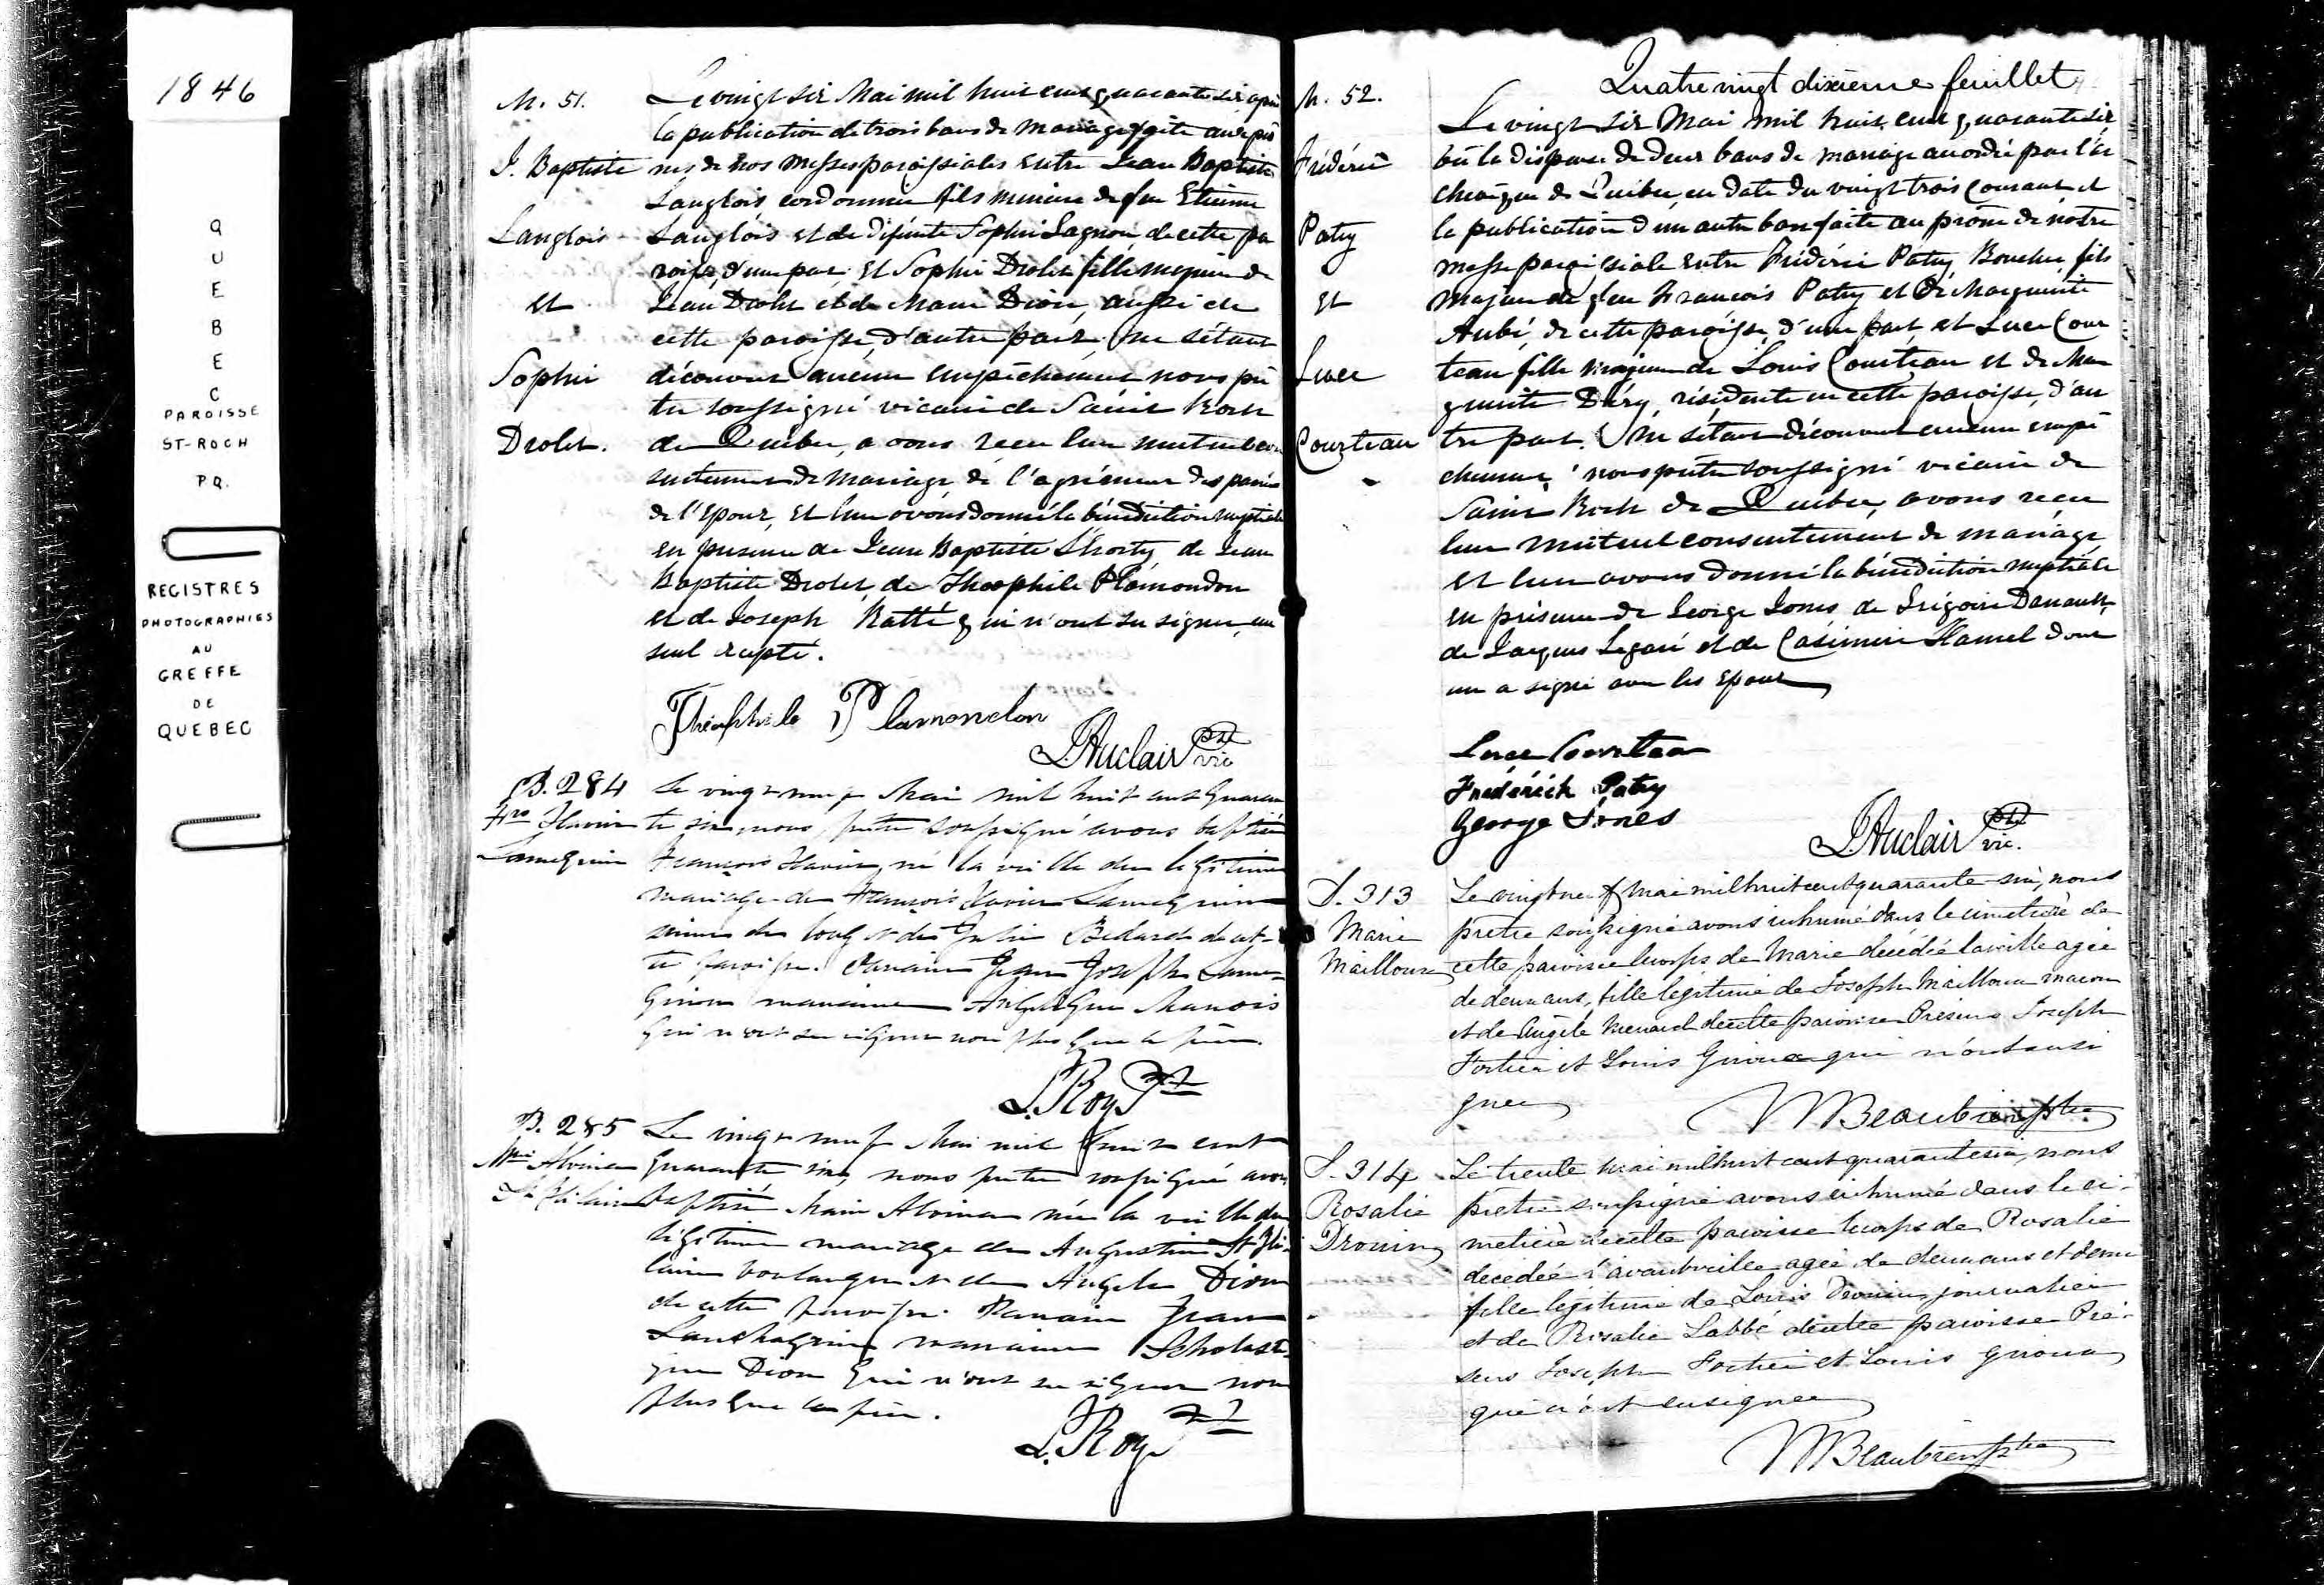 1846
QUEBEC
PAROISSE
ST-ROCH
P.Q.
REGISTRES
PHOTOGRAPHIES
AU
GREFFE
DE
QUEBEC
M. 51.
J. Baptiste
Langlois
et
Sophie
Drolet.
Le vingt six Mai mil huit cent quarante six après
la publication de trois bans de mariage faite aux prô
nes de nos messes paroissiales entre Jean Baptiste
Langlois cordonnier fils mineur de feu Etienne
Langlois et de défunte Sophie Gagnon, de cette pa
roisse, d'une part, et Sophie Drolet fille majeure de
Jean Drolet et de Marie Dion, aussi de
cette paroisse, d'autre part. Ne s'étant
découvert aucun empêchement nous prê
tre soussigné vicaire de Saint Roch
de Québec, avons reçu leur mutuel con
sentement de mariage de l'agrément des parens
de l'Epoux, et leur avons donné la bénédiction nuptiale
en présence de Jean Baptiste de Jean
Baptiste Drolet, de Théophile Plamondon
et de Joseph Ratté qui n'ont su signer, un
seul excepté.
Théophile Plamondon
J. Auclair Ptre
vic
B. 284
Frs Xavier
Lamegnin
Le vingt neuf Mai mil huit cent quaran
te six, nous, prêtre soussigné avons baptisé
François Xavier, né la veille du légitime
mariage de François Xavier
et de Julie Bedard de cet
te paroisse. Parrain Jean Joseph
marraine Angélique
qui n'ont su signer non plus que le père.
L. Roy Ptre
B. 285
Mie Alvina
St Hilaire
Le vingt neuf Mai mil huit cent
quarante six, nous prêtre soussigné avons
baptisé Marie Alvina née la veille du
légitime mariage de Augustin St Hi-
laire boulanger et de Angèle Dion
de cette paroisse. Parrain Jean
marraine Scholasti-
que Dion qui n'ont su signer non
plus que le père.
L. Roy Ptre
Quatre vingt dixième feuillet
M. 52.
Frédéric
Patry
et
Luce
Courteau
Le vingt six Mai mil huit cent quarante six
vû la dispense de deux bans de mariage accordée par l'Ar
chevêque de Québec, en date du vingt trois courant, et
la publication d'un autre ban faite au prône de notre
messe paroissiale entre Frédéric Patry, Boucher, fils
majeur de feu François Patry et de Marguerite
Aubé, de cette paroisse, d'une part, et Luce Cour
teau fille majeure de Louis Courteau et de Mar
guerite Déry, résidente en cette paroisse, d'au
tre part. Ne s'étant découvert aucun empê
chement, nous prêtre soussigné vicaire de
Saint Roch de Québec, avons reçu
leur mutuel consentement de mariage
et leur avons donné la bénédiction nuptiale
en présence de George Jones, de Grégoire Danault,
de Jacques Legaré et de Casimire Hamel dont
un a signé avec les Epoux
Luce Courteau
Frédérick Patry
George Jones
J. Auclair Ptre
vic.
S. 313
Marie
Mailloux
Le vingt neuf mai mil huit cent quarante six, nous
prêtre soussigné avons inhumé dans le cimetière de
cette paroisse le corps de Marie décédée la veille agée
de deux ans, fille légitime de Joseph Mailloux macon
et de Angèle Menard de cette paroisse Présens Joseph
Fortier et Louis Giroux qui n'ont su si
gner
M Beaubien Ptre
S. 314
Rosalie
Drouin
Le trente mai mil huit cent quarante six, nous
prêtre soussigné avons inhumé dans le ci-
metière de cette paroisse le corps de Rosalie
décédée l'avant veille agée de deux ans et demi
fille légitime de Louis Drouin journalier
et de Rosalie Labbé de cette paroisse Pré-
sens Joseph Fortier et Louis Giroux
qui n'ont su signer
M Beaubien Ptre